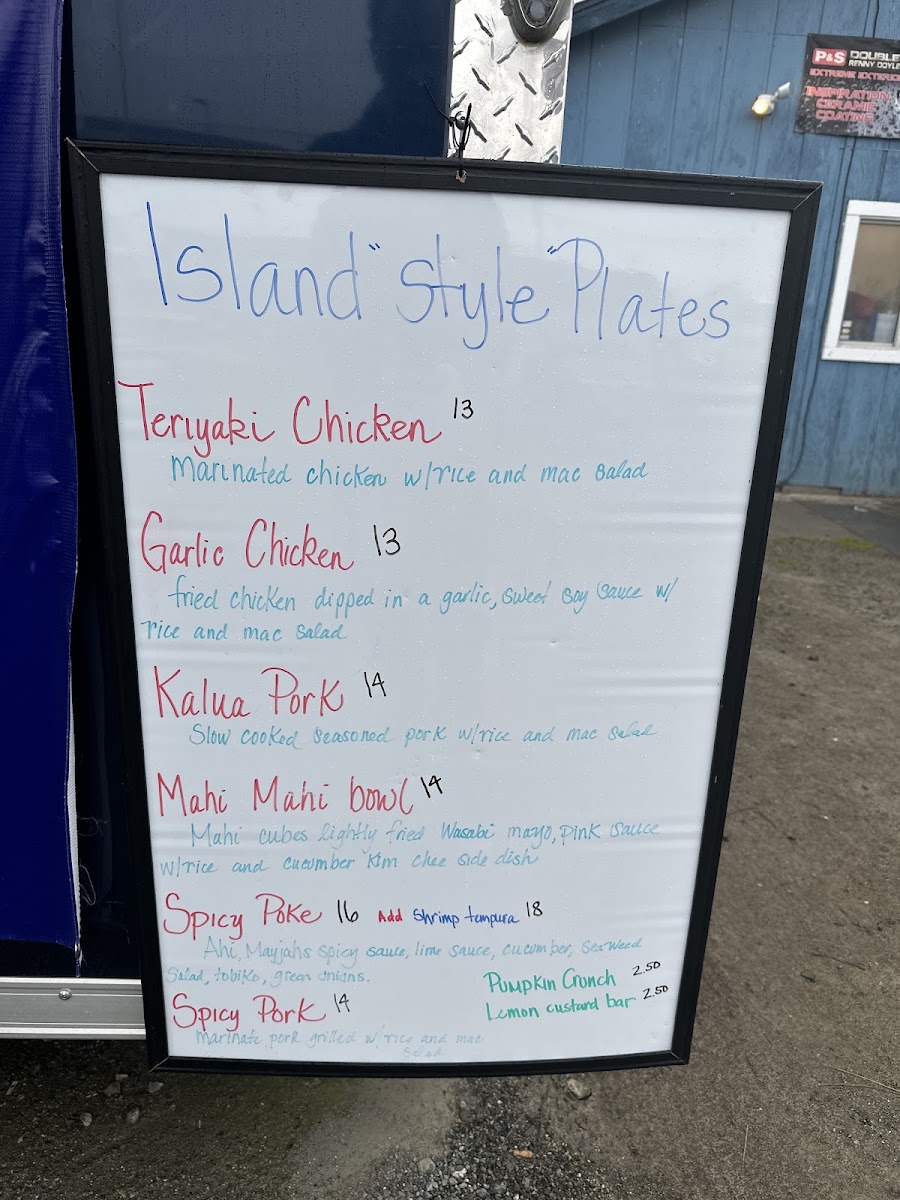 P&S DOUBLE
RENNY DOYLE
EXTREME EXTERIOR
INSPIRATION
CERAMIC
COATING
Island "Style" Plates
Teriyaki Chicken 13
Marinated chicken w/rice and mac salad
Garlic Chicken 13
fried chicken dipped in a garlic, sweet soy sauce w/
rice and mac salad
Kalua Pork 14
Slow cooked seasoned pork w/rice and mac salad
Mahi Mahi bowl 14
Mahi cubes lightly fried Wasabi mayo, pink sauce
w/rice and cucumber Kim chee side dish
Spicy Poke 16 Add Shrimp tempura 18
Ahi, Mayjahs spicy sauce, lime sauce, cucumber, seaweed
Salad, tobiko, green onions.
Pumpkin Crunch 2.50
Lemon custard bar 2.50
Spicy Pork 14
Marinate pork grilled w/rice and mac
Salad